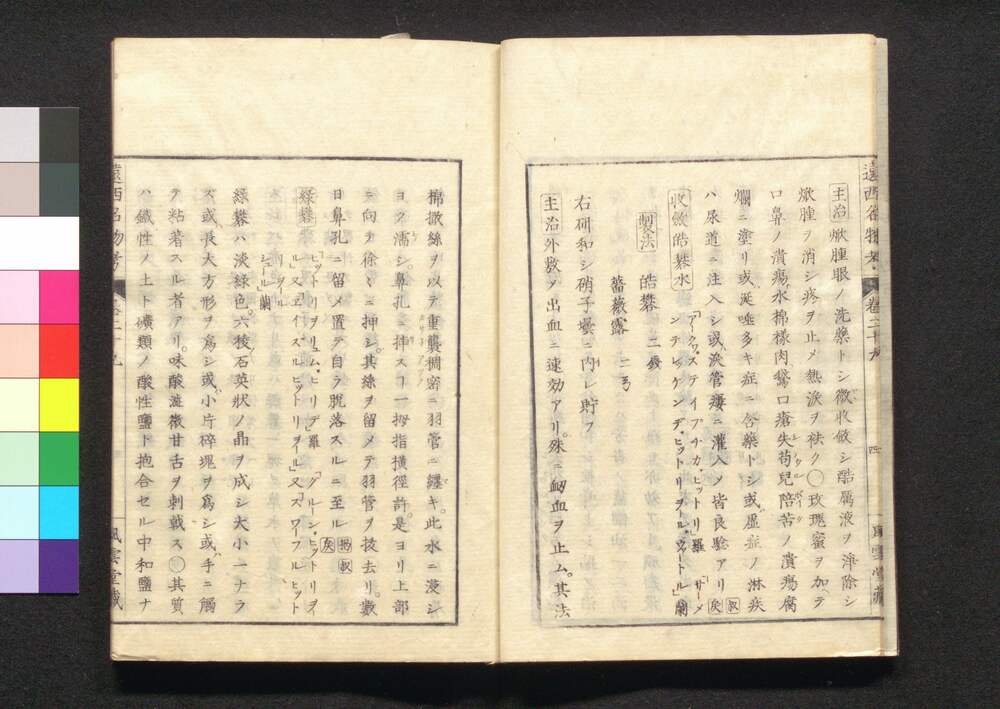 遠西名物考
卷二十九
四
風雲堂藏
主治 焮腫眼ノ洗藥トシ微收斂シ酷厲液ヲ淨除シ
焮腫ヲ消シ疼ヲ止メ熱淚ヲ袪ク〇玫瑰蜜ヲ加テ
口鼻ノ潰瘍水棉樣肉鵞口瘡失苟兒陪苦ノ潰瘍腐
爛ニ塗リ或涎唾多キ症ニ含藥トシ或虛症ノ淋疾
ハ尿道ニ注入シ或淚管瘻ニ灌入ノ皆良驗アリ
收斂皓礬水
製法 皓礬 二錢
薔薇露
右研和シ硝子壜ニ內レ貯フ
主治 外敷ノ出血ニ速効アリ。殊ニ衂血ヲ止ム。其法
綿撒絲ヲ以テ重襲稠密ニ羽管ニ纏キ。此水ニ浸シ
ヨク濡シ。鼻孔ニ挿スコ一拇指橫徑許。是ヨリ上部
ニ向テ徐々ニ押シ。其絲ヲ留メテ羽管ヲ拔去リ。數
日鼻孔ニ留メ置テ自ラ脫落スルニ至ル
綠礬 ヒットリヲリュム・ヒリデ」羅 「グルーン・ヒットリヲ
ル」又「エイズルヒットリヲール」又「ズワーフルヒット
綠礬ハ淡綠色。六稜石英狀ノ晶ヲ成シ大小一ナラ
ス或ハ長大方形ヲ爲シ或ハ小片碎塊ヲ爲シ或ハ手ニ觸
テ粘著スル者アリ。味酸澁微甘舌ヲ刺戟ス〇其質
ハ鐵性ノ土ト礦類ノ酸性鹽ト抱合セル中和鹽ナ
遠西名物考
卷二十九
風雲堂藏